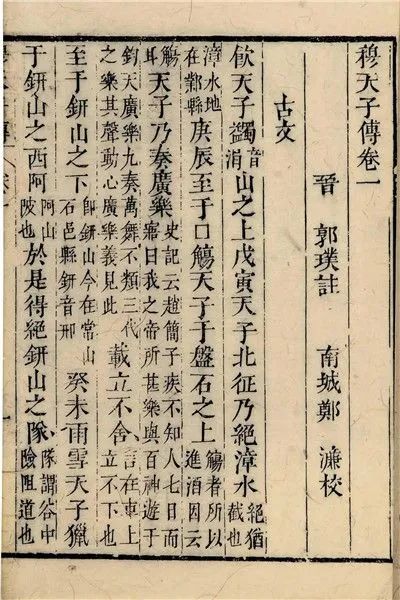 穆天子傳卷一
晉 郭璞註 南城鄭 濂校
古文
飲天子蠲音消山之上戊寅天子北征乃絕漳水絕猶截也
漳水地在鄴縣庚辰至于囗觴天子于盤石之上觴者所以進酒因云
觴耳天子乃奏廣樂史記云趙簡子疾不知人七日而寤曰我之帝所甚樂與百神遊于
鈞天廣樂九奏萬舞不類三代之樂其聲動心廣樂義見此載立不舍言在車上立不下也
至于鈃山之下即鈃山今在常山石邑縣鈃音邢癸未雨雪天子獵
于鈃山之西阿阿山陂也於是得絕鈃山之隊隊謂谷中險阻道也